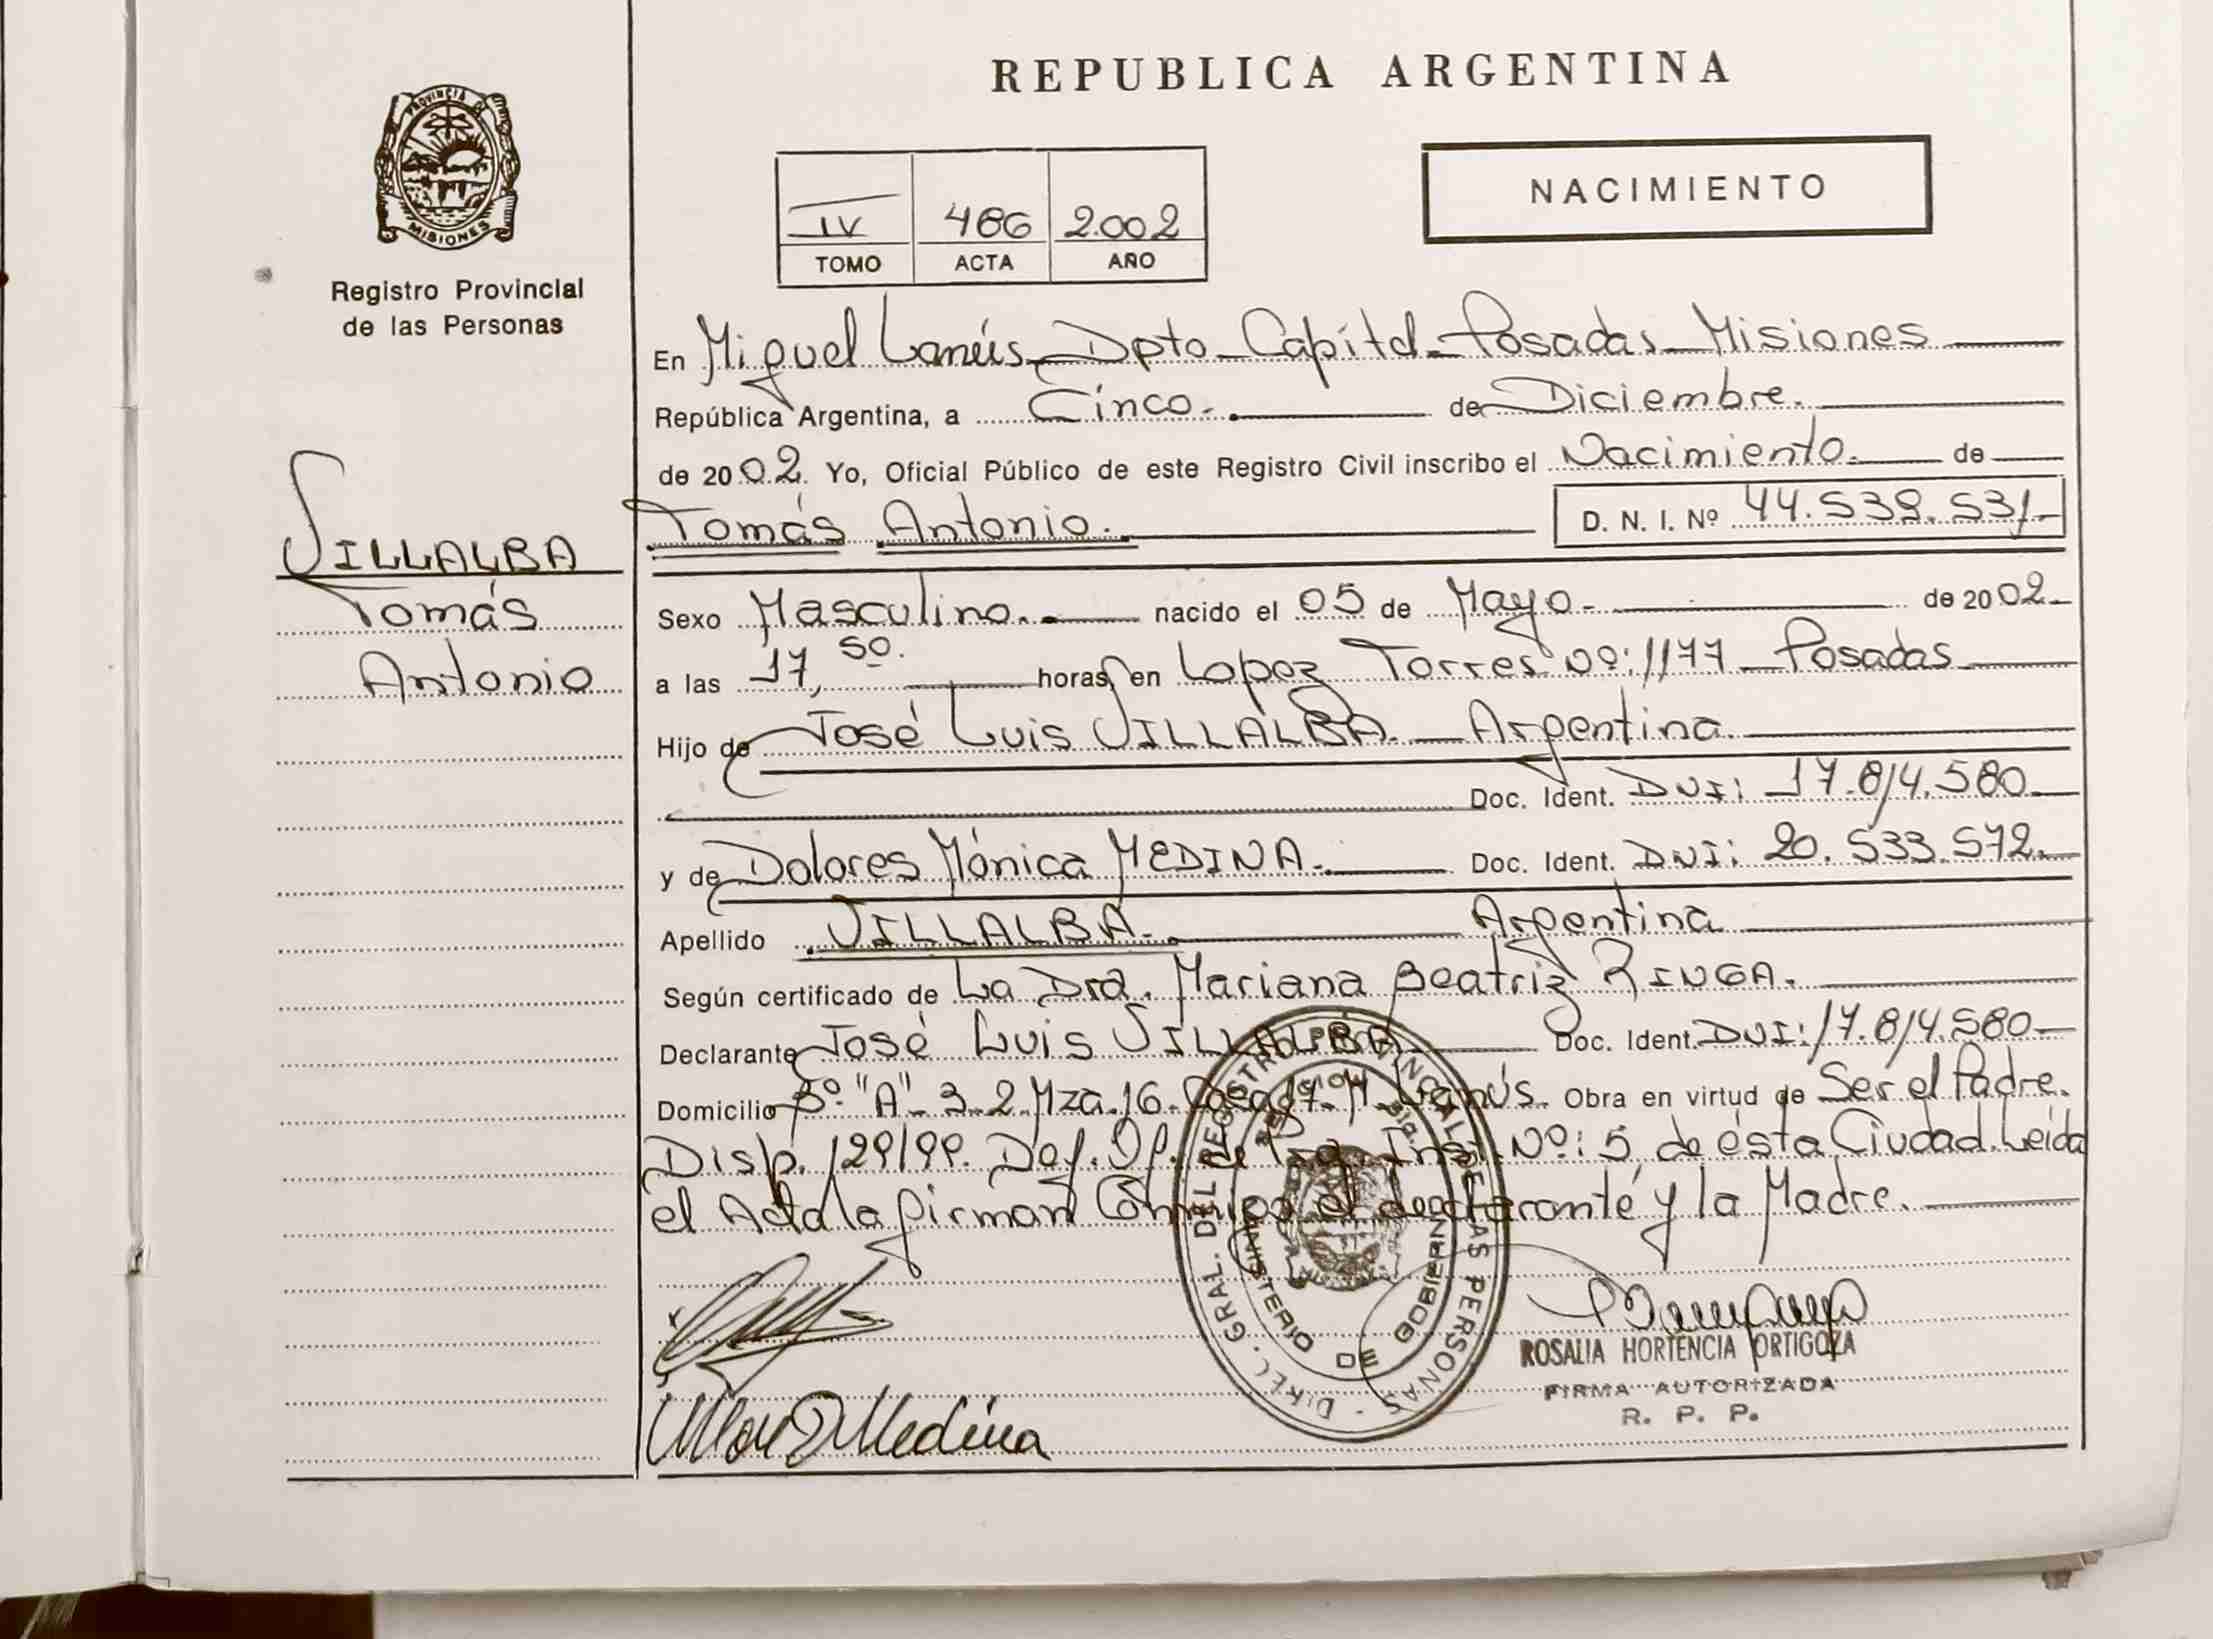 REPUBLICA ARGENTINA
NACIMIENTO
IV 486 2.002
TOMO ACTA AÑO
PROVINCIA DE MISIONES
Registro Provincial
de las Personas
VILLALBA
Tomás
Antonio
En Miguel Lanús - Dpto - Capital - Posadas - Misiones
República Argentina, a Cinco. de Diciembre.
de 2002. Yo, Oficial Público de este Registro Civil inscribo el Nacimiento. de
Tomás Antonio. D. N. I. Nº 44.539.531-
Sexo Masculino. nacido el 05 de Mayo - de 2002-
a las 17,50. horas, en Lopez Torres Nº: 1177 - Posadas
Hijo de José Luis VILLALBA. - Argentina.
Doc. Ident. DNI: 17.814.580-
y de Dolores Mónica MEDINA. Doc. Ident. DNI: 20.533.572.
Apellido VILLALBA. Argentina
Según certificado de La Dra. Mariana Beatriz RINGA.
Declarante José Luis VILLALBA Doc. Ident. DNI: 17.814.580-
Domicilio "A" - 3 - 2 - Mza. 16. Lanús. Obra en virtud de Ser el Padre.
Disp. 129/99. Def. Of. de Nº: 5 de ésta Ciudad. Leída
el Acta la firman Conmigo el declarante y la Madre.
DIREC. GRAL. DEL REGISTRO PROVINCIAL DE LAS PERSONAS
MINISTERIO DE GOBIERNO
Medina
ROSALIA HORTENCIA ORTIGOZA
FIRMA AUTORIZADA
R. P. P.